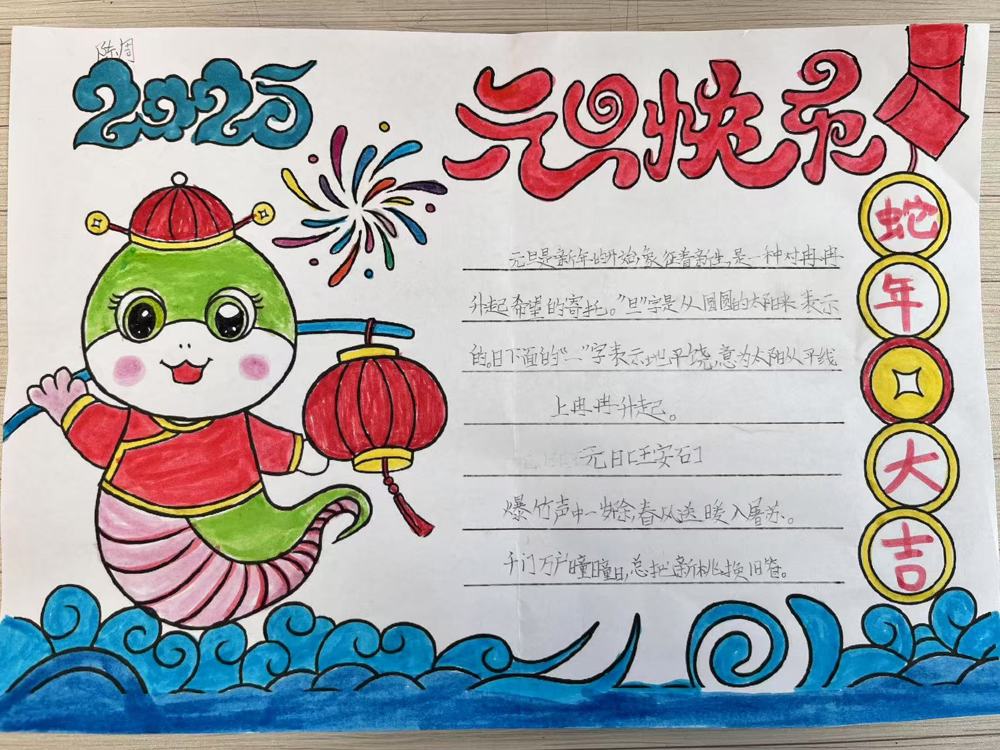 陈周
2025
元旦快乐
元旦是新年的开始,象征着新生,是一种对冉冉
升起希望的寄托。"旦"字是从圆圆的太阳来表示
的。日下面的"一"字表示地平饶,意为太阳从平线
上冉冉升起。
元日[王安石]
爆竹声中一岁除,春风送暖入屠苏。
千门万户曈曈日,总把新桃换旧符。
蛇
年
大
吉